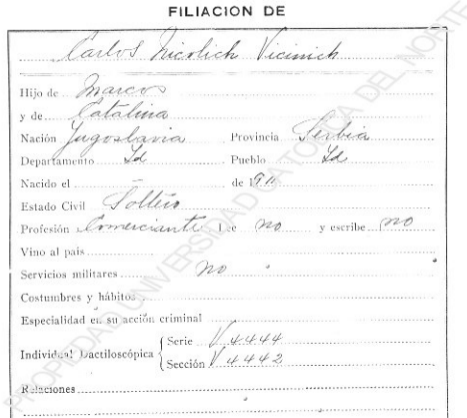 FILIACION DE
Carlos Nicolich Vicinich
Hijo de Marcos
y de Catalina
Nación Jugoslavia Provincia Serbia
Departamento Id Pueblo Id
Nacido el de 19
Estado Civil Soltero
Profesión Comerciante Lee no y escribe no
Vino al país
Servicios militares no
Costumbres y hábitos
Especialidad en su acción criminal
Individual Dactiloscópica Serie V 4444
Sección V 4442
Relaciones
PROPIEDAD UNIVERSIDAD CATOLICA DEL NORTE